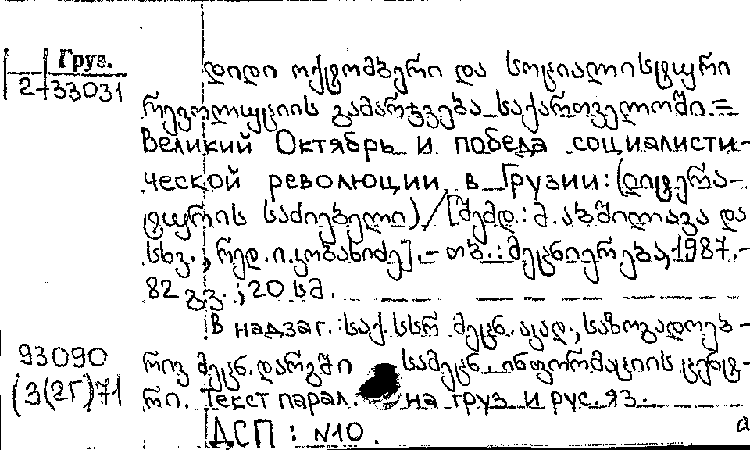 Груз.
2-33031
დიდი ოქტომბერი და სოციალისტური
რევოლუციის გამარჯვება საქართველოში =
Великий Октябрь и победа социалисти-
ческой революции в Грузии: (ლიტერა-
ტურის საძიებელი) / [შემდ.: მ. აბშილავა და
სხვ.; რედ. ი. კობახიძე]. - თბ.: მეცნიერება, 1987. -
82 გვ.; 20 სმ.
В надзаг.: საქ. სსრ მეცნ. აკად., საზოგადოებ-
93090
რივ მეცნ. დარგში სამეცნ. ინფორმაციის ცენტ-
(3(2Г)71
რი. Текст парал. на груз. и рус. яз.
ДСП: N10.
а